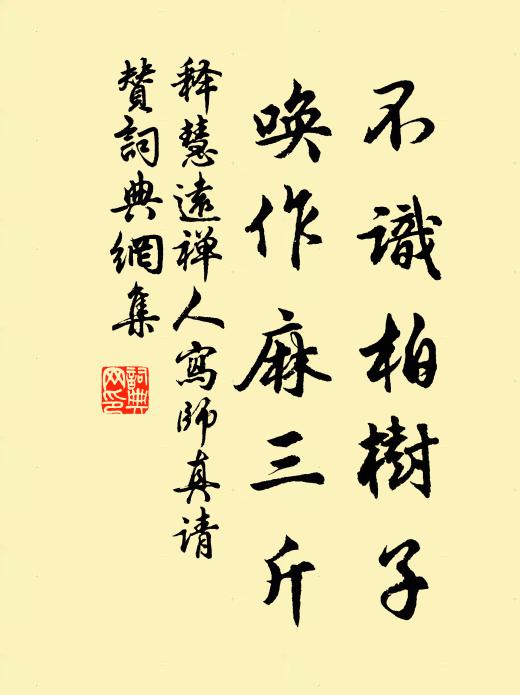 不識柏樹子
喚作麻三斤
释慧遠禅人寫師真请
贊詞典網集
詞典网印